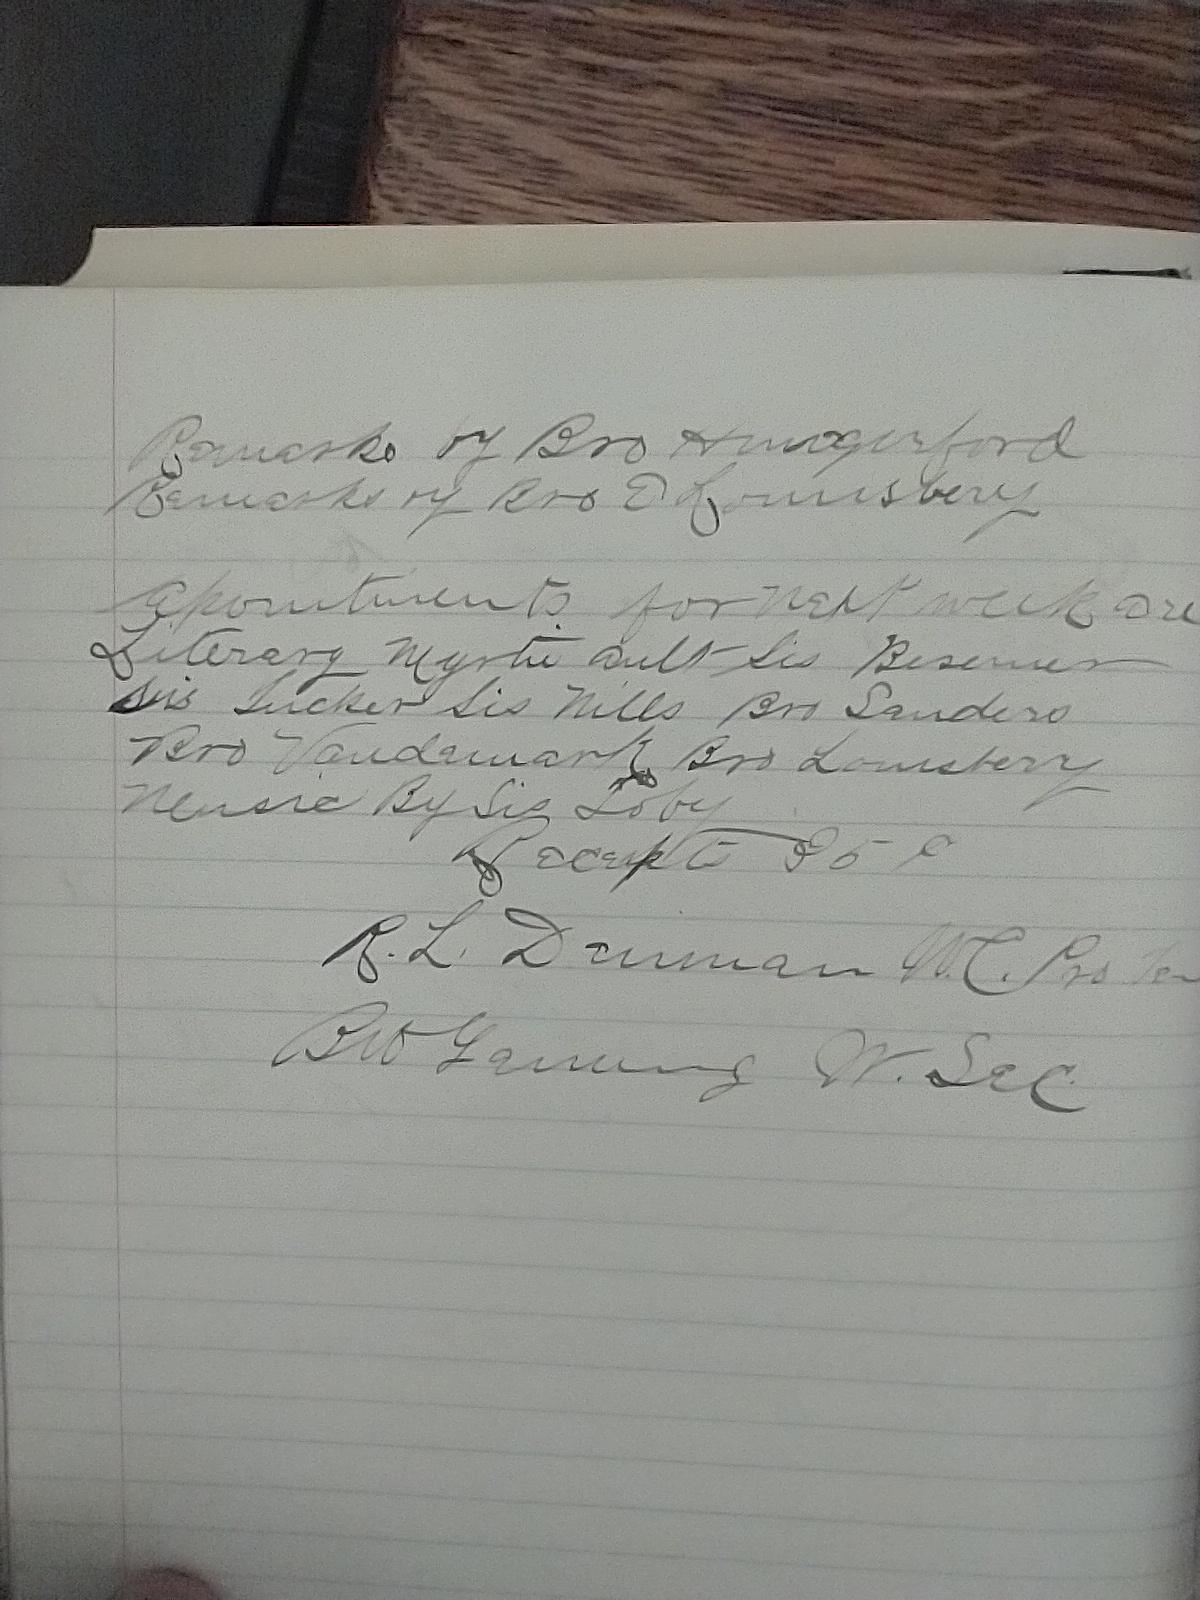 Remarks by Bro Hungerford
Remarks by Bro E Lounsbery
Apointments for next week are
Literary Myrtie Ault Sis Besemer
Sis Tucker Sis Mills Bro Sanders
Bro Vandemark Bro Lounsbery
Music By Sis Loby
Recepts 25 c
R. L. Denman W. C. Pro Tem
Bro Ganung W. Sec